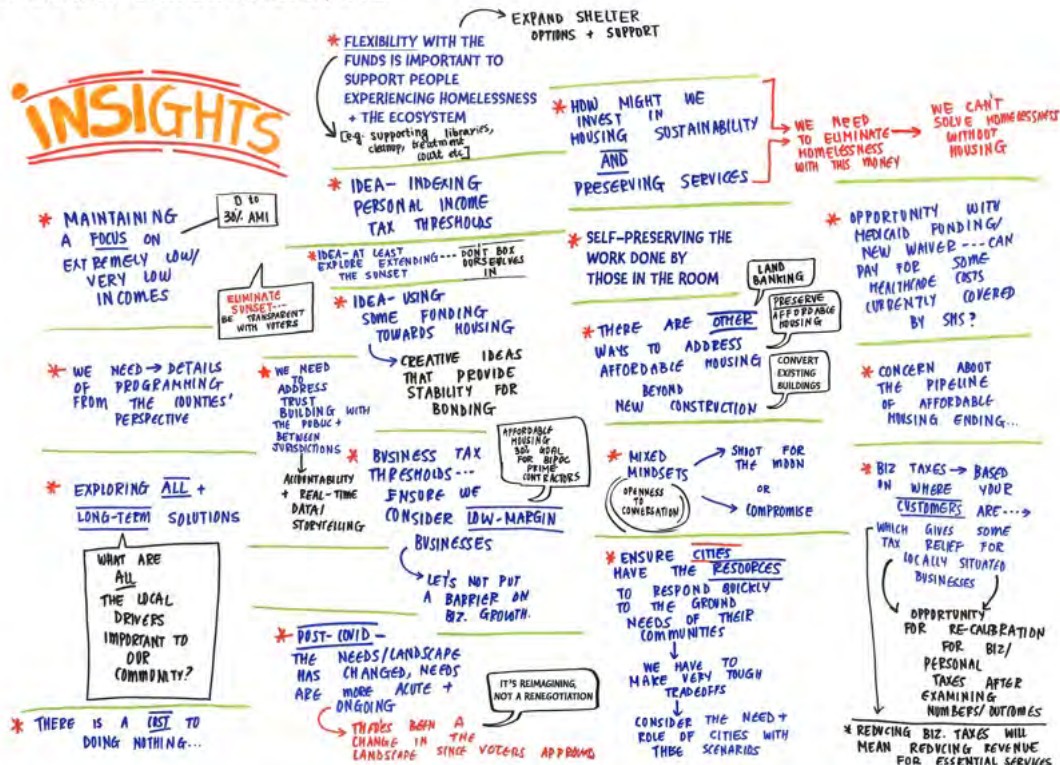 INSIGHTS
* MAINTAINING
A FOCUS ON
EXTREMELY LOW/
VERY LOW
INCOMES
0 to
30% AMI
ELIMINATE
SUNSET...
BE TRANSPARENT
WITH VOTERS
* WE NEED → DETAILS
OF PROGRAMMING
FROM THE COUNTIES'
PERSPECTIVE
* EXPLORING ALL +
LONG-TERM SOLUTIONS
WHAT ARE
ALL
THE LOCAL
DRIVERS
IMPORTANT TO
OUR
COMMUNITY?
* THERE IS A COST TO
DOING NOTHING...
* FLEXIBILITY WITH THE
FUNDS IS IMPORTANT TO
SUPPORT PEOPLE
EXPERIENCING HOMELESSNESS
+ THE ECOSYSTEM
[e.g. supporting libraries,
cleanup, treatment
court etc]
EXPAND SHELTER
OPTIONS + SUPPORT
* IDEA- INDEXING
PERSONAL INCOME
TAX THRESHOLDS
* IDEA- AT LEAST
EXPLORE EXTENDING...
THE SUNSET
DON'T BOX
OURSELVES
IN
* IDEA- USING
SOME FUNDING
TOWARDS HOUSING
CREATIVE IDEAS
THAT PROVIDE
STABILITY FOR
BONDING
* WE NEED
TO
ADDRESS
TRUST
BUILDING WITH
THE PUBLIC +
BETWEEN
JURISDICTIONS
ACCOUNTABILITY
+ REAL-TIME
DATA/
STORYTELLING
* BUSINESS TAX
THRESHOLDS...
ENSURE WE
CONSIDER LOW-MARGIN
BUSINESSES
LET'S NOT PUT
A BARRIER ON
BIZ. GROWTH.
AFFORDABLE
HOUSING
30% GOAL
FOR BIPOC
PRIME
CONTRACTORS
* POST-COVID-
THE NEEDS/LANDSCAPE
HAS CHANGED, NEEDS
ARE MORE ACUTE +
ONGOING
THERE'S BEEN A
CHANGE IN THE
LANDSCAPE SINCE VOTERS APPROVED
IT'S REIMAGINING,
NOT A RENEGOTIATION
* HOW MIGHT WE
INVEST IN
HOUSING SUSTAINABILITY
AND
PRESERVING SERVICES
WE NEED
TO ELIMINATE
HOMELESSNESS
WITH THIS MONEY
WE CAN'T
SOLVE HOMELESSNESS
WITHOUT
HOUSING
* SELF-PRESERVING THE
WORK DONE BY
THOSE IN THE ROOM
* THERE ARE OTHER
WAYS TO ADDRESS
AFFORDABLE HOUSING
BEYOND
NEW CONSTRUCTION
LAND
BANKING
PRESERVE
AFFORDABLE
HOUSING
CONVERT
EXISTING
BUILDINGS
* MIXED
MINDSETS
OPENNESS
TO
CONVERSATION
SHOOT FOR
THE MOON
OR
COMPROMISE
* ENSURE CITIES
HAVE THE RESOURCES
TO RESPOND QUICKLY
TO THE GROUND
NEEDS OF THEIR
COMMUNITIES
WE HAVE TO
MAKE VERY TOUGH
TRADEOFFS
CONSIDER THE NEED +
ROLE OF CITIES WITH
THESE SCENARIOS
* OPPORTUNITY WITH
MEDICAID FUNDING/
NEW WAIVER ... CAN
PAY FOR SOME
HEALTHCARE COSTS
CURRENTLY COVERED
BY SHS?
* CONCERN ABOUT
THE PIPELINE
OF AFFORDABLE
HOUSING ENDING...
* BIZ TAXES → BASED
ON WHERE YOUR
CUSTOMERS ARE...→
WHICH GIVES SOME
TAX RELIEF FOR
LOCALLY SITUATED
BUSINESSES
OPPORTUNITY
FOR RE-CALIBRATION
FOR BIZ/
PERSONAL
TAXES AFTER
EXAMINING
NUMBERS/OUTCOMES
* REDUCING BIZ. TAXES WILL
MEAN REDUCING REVENUE
FOR ESSENTIAL SERVICES